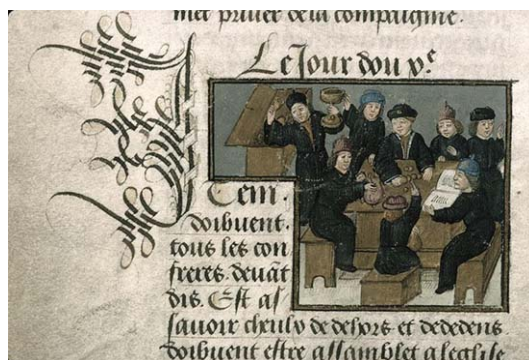 met priuer de la compaignie.
Le Jour dou v.e
Item.
doibuent.
tous les con
freres. deuāt
dis. Est as
sauoir cheulx de dehors et de dedens
doibuent estre assamblet a leglise